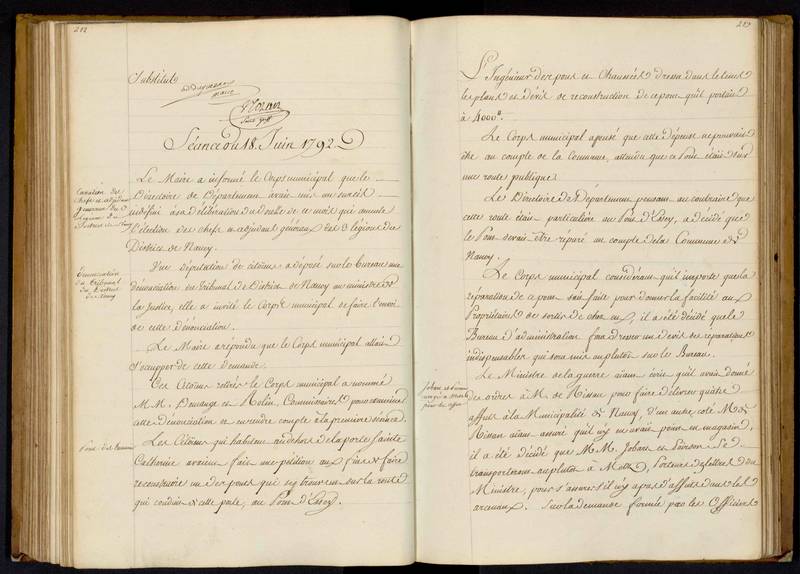 212
Substitut
Séance du 18. Juin 1792
Le Maire a informé le Corps municipal que le
Directoire de Département avait mis un sursit
indéfini à sa délibération du douze de ce mois qui annule
l'élection des chefs et adjudant généraux des 3 légions du
District de Nancy.
Une députation de citoïens a déposé sur le bureau une
dénonciation du Tribunal de District de Nancy au ministre de
la Justice, elle a invité le Corps municipal de faire l'envoi
de cette dénonciation.
Le Maire a répondu que le Corps municipal allait
s'occuper de cette demande.
Ces Citoïens retirés le Corps municipal a nommé
M. M. Demange et Rolin, Commissaires pour examiner
cette dénonciation et en rendre compte à la première séance.
Les Citoïens qui habitent au dehors de la porte Sainte
Catherine avoient fait une pétition aux fins de faire
reconstruire un des ponts qui se trouvent sur la route
qui conduit de cette porte, au Pont d'Essey.
Dénonciation
du Tribunal
du District
de Nancy
213
L'Ingénieur des ponts et Chaussées dressa dans le tems
les plans et dévis de reconstruction de ce pont qu'il portait
à 4000#.
Le Corps municipal a pensé que cette dépense ne pouvait
être au compte de la Commune, attendu que ce Pont était sur
une route publique.
Le Directoire de Département pensant au contraire que
cette route était particulière au Pont d'Essey, a décidé que
le Pont serait être réparé au compte de la Commune de
Nancy.
Le Corps municipal considérant qu'il importe que la
réparation de ce pont soit faite pour donner la facilité aux
Propriétaires de sortir de chez eux, il a été décidé que le
Bureau d'administration fera dresser un devis des réparations
indispensables qui sera mis au plutôt sur le Bureau.
Le Ministre de la guerre aïant écrit qu'il avait donné
des ordres à M. de Risan pour faire délivrer quatre
affuts à la Municipalité de Nancy, d'un autre coté M. de
Risan aïant assuré qu'il n'y en avait point en magasin,
il a été décidé que M. M. Jobart et Poirson se
transporteront au plutôt à Metz, Porteurs des lettres du
Ministre, pour s'assurer s'il n'y a pas d'affuts dans les
arcenaux. Sur la demande formée par les Officiers